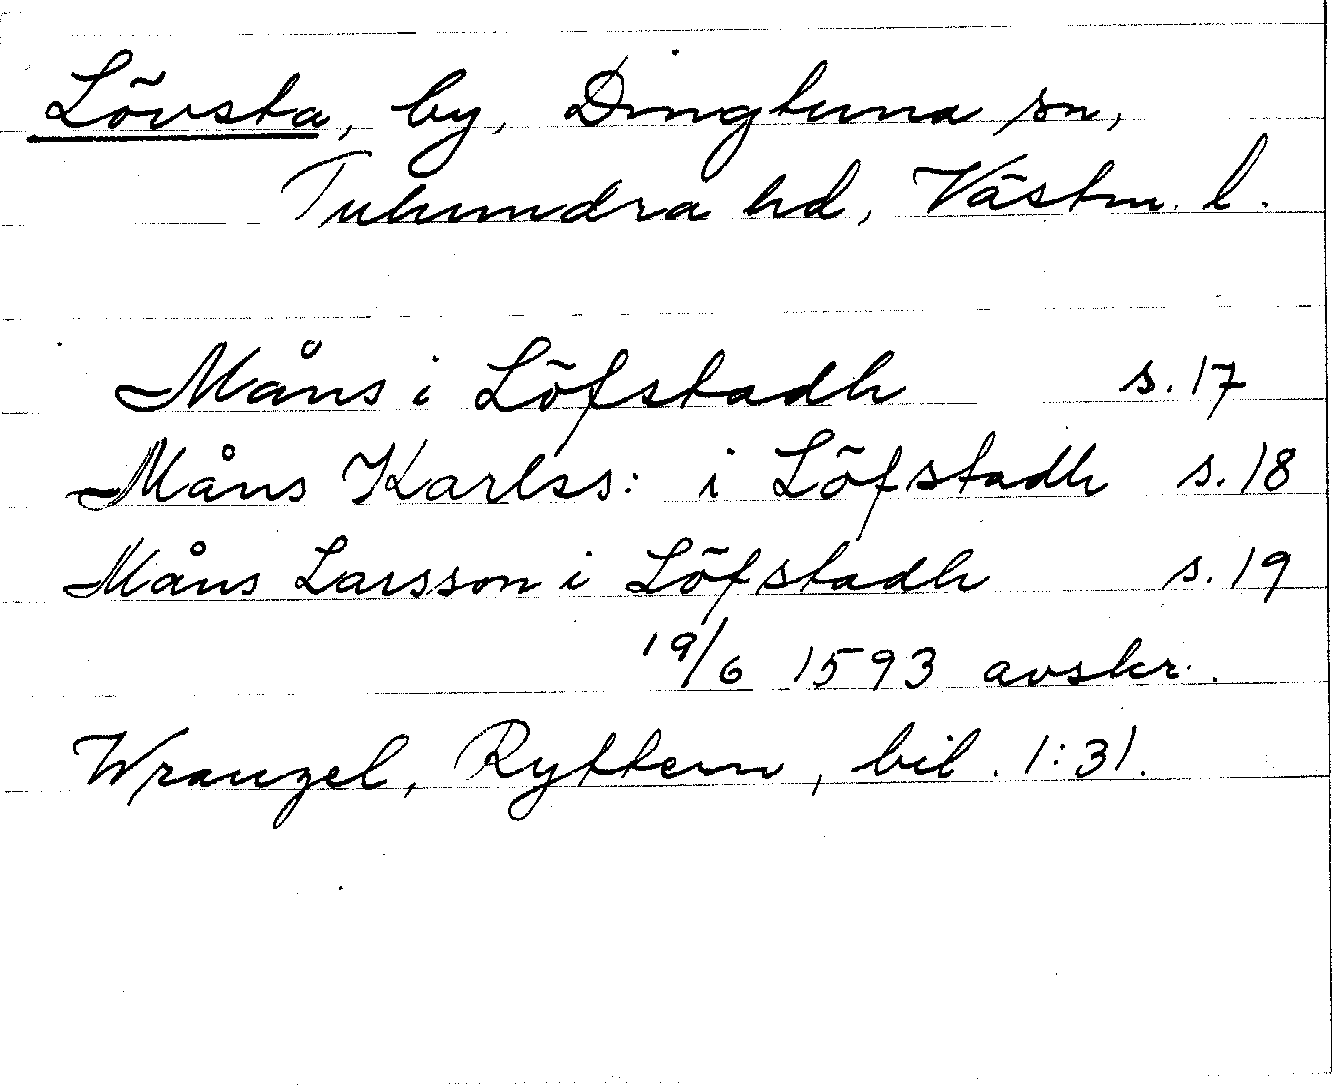 Lövsta, by, Dingtuna sn,
Tuhundra hd, Västm. l.
Måns i Löfstadh s. 17
Måns Karlss: i Löfstadh s. 18
Måns Larsson i Löfstadh s. 19
19/6 1593 avskr.
Wrangel, Ryttern, bil. 1:31.